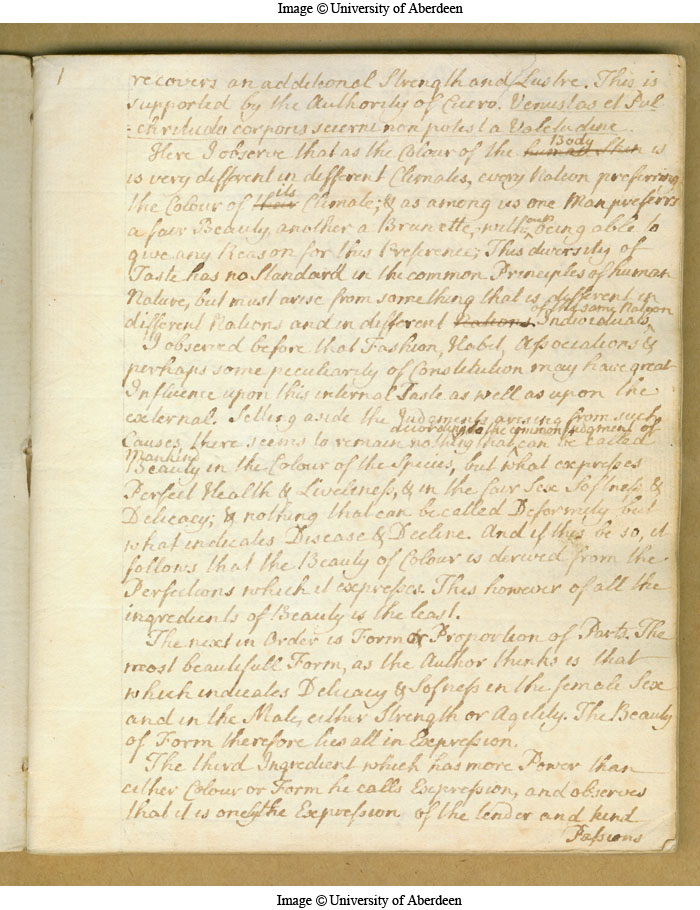 Image © University of Aberdeen
1
recovers an additional Strength and Lustre. This is
supported by the Authority of Cicero. Venustas et Pul
=chritudo corporis secerni non potest a Valetudine.
Body
Here I observe that as the Colour of the human Skin is
is very different in different Climates, every Nation preferring
its
the Colour of their Climate; & as among us one Man preferrs
a fair Beauty another a Brunette, without being able to
give any Reason for this Preference; This diversity of
Taste has no Standard in the common Principles of human
Nature, but must arise from something that is different in
of the same Nation
different Nations and in different Nations Individuals
I observed before that Fashion, Habit, Associations &
perhaps some peculiarity of Constitution may have great
Influence upon this internal Taste as well as upon the
external. Setting aside the Judgments arising from such
according to the common Judgment of
Causes, there seems to remain nothing that can be called
Mankind
Beauty in the Colour of the Species, but what expresses
Perfect Health & Liveliness, & in the fair Sex Softness &
Delicacy; & nothing that can be called Deformity but
what indicates Disease & Decline. And if this be so, it
follows that the Beauty of Colour is derived from the
Perfections which it expresses. This however of all the
ingredients of Beauty is the least.
The next in Order is Form or Proportion of Parts. The
most beautifull Form, as the Author thinks is that
which indicates Delicacy & Sofness in the female Sex
and in the Male, either Strength or Agility. The Beauty
of Form therefore lies all in Expression.
The third Ingredient which has more Power than
either Colour or Form he calls Expression, and observes
that it is only the Expression of the tender and kind
Passions
Image © University of Aberdeen